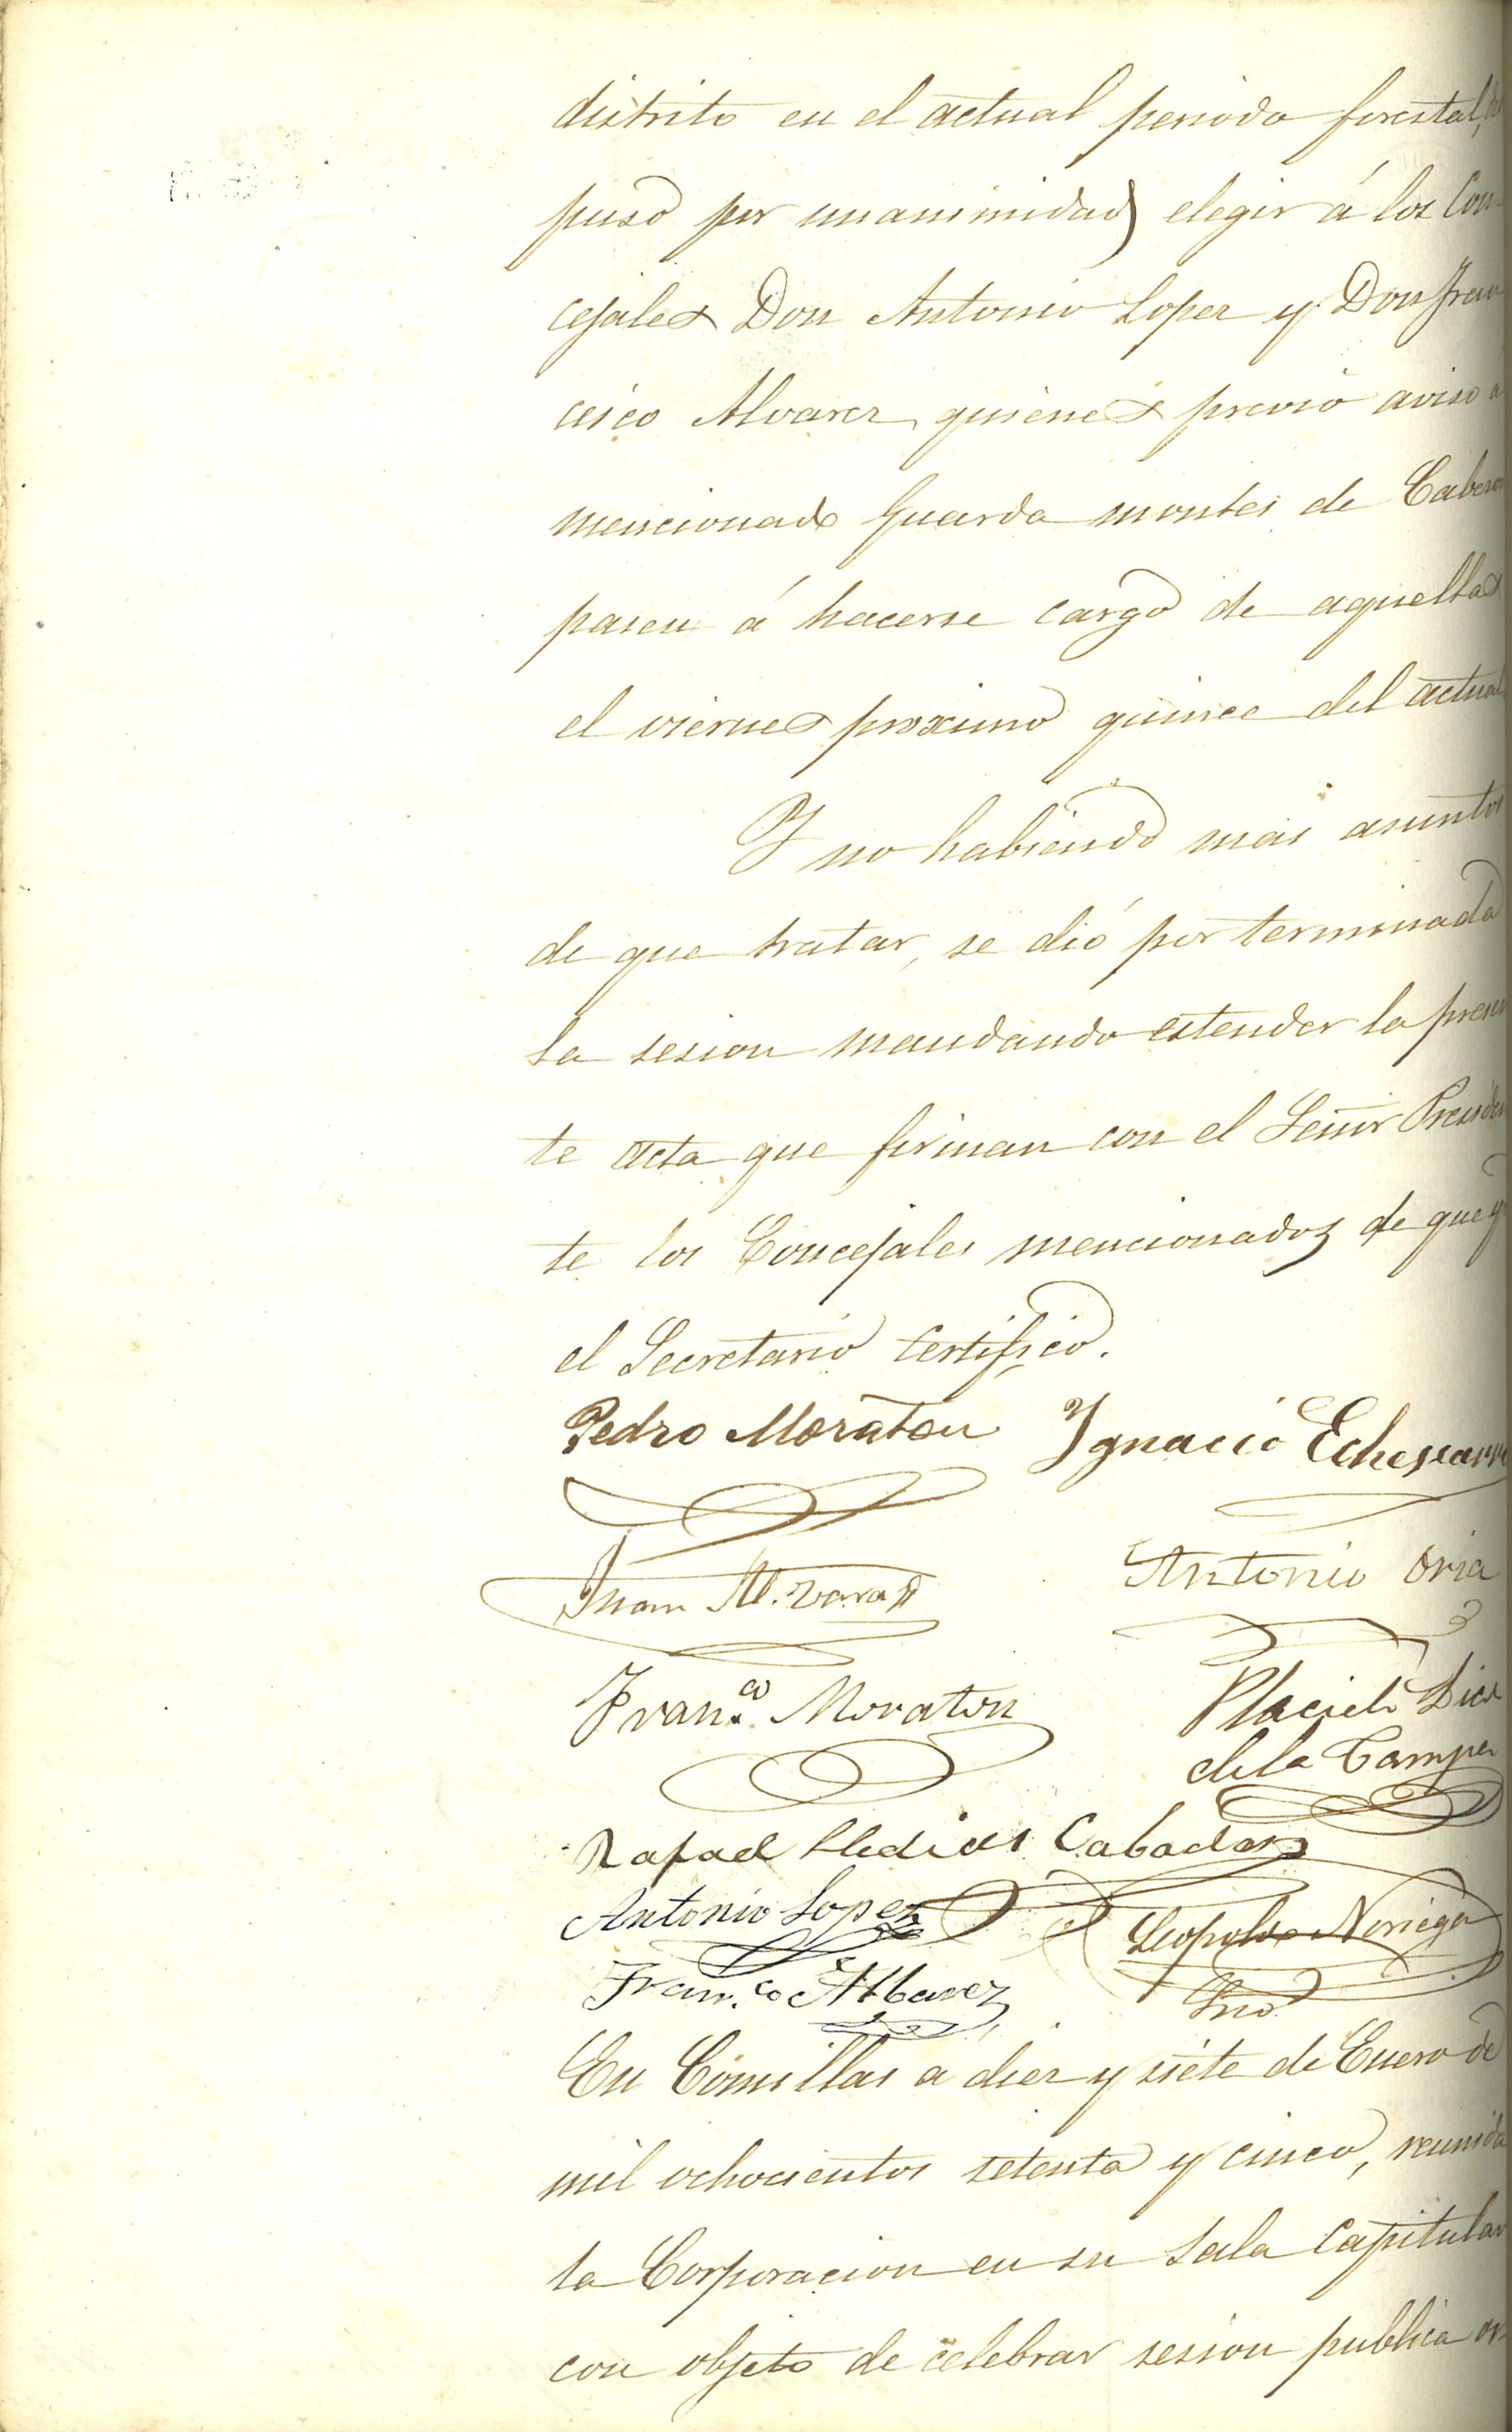 distrito en el actual periodo forestal,
puso por unanimidad elegir á los Con
cejales Don Antonio Lopez y Don Fran
cisco Alvarez, quienes previo aviso a
mencionado Guarda montes de Cabezon
pasen á hacerse cargo de aquellas
el viernes proximo quince del actual
Y no habiendo mas asuntos
de que tratar, se dió por terminada
la sesion mandando estender la presen
te acta que firman con el Señor Presiden
te los Concejales mencionados de que yo
el Secretario certifico.
Pedro Moraton Ygnacio Echevarri
Juan Antonio Oria
Fran.co Moraton Placido Diez
de la Campa
Rafael Cabadas
Antonio Lopez Leopoldo Noriega
Fran.co Albarez Srio
En Comillas a diez y siete de Enero de
mil ochocientos setenta y cinco, reunida
la Corporacion en su Sala Capitular
con objeto de celebrar sesion publica or